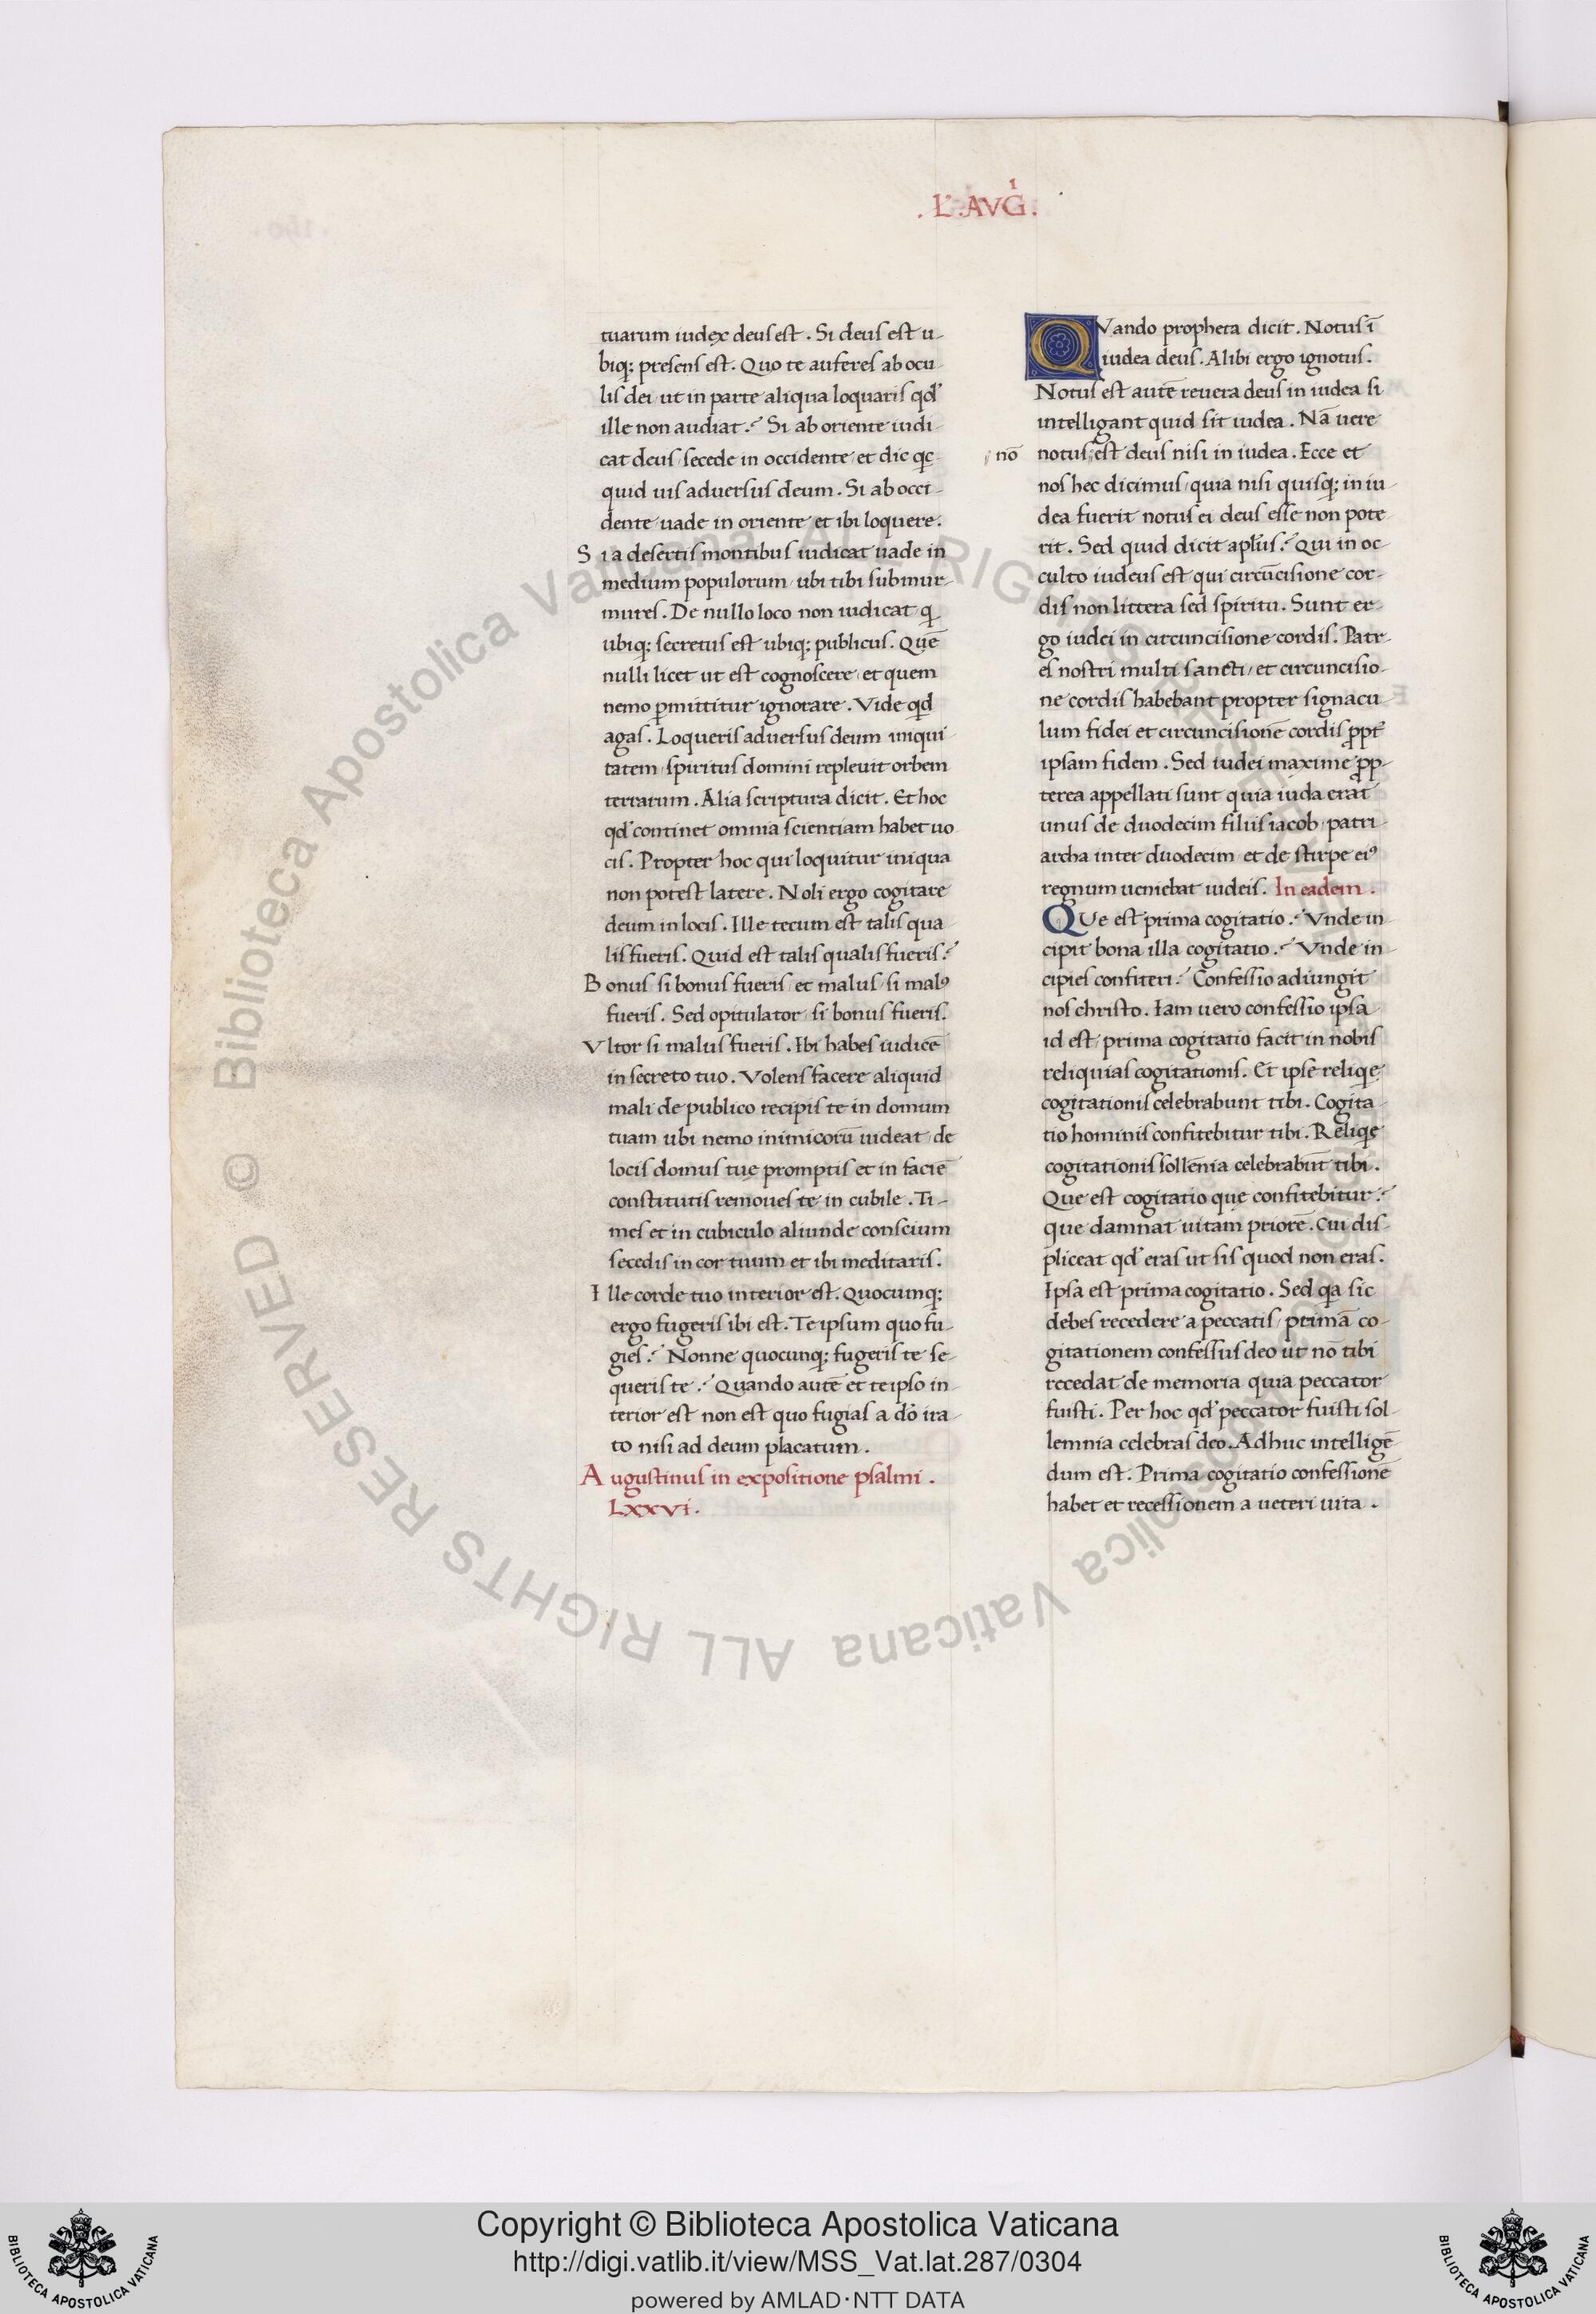 . L'. AVG̍ .
tuarum iudex deus est . Si deus est u-
biq; presens est . Quo te auferes ab ocu-
lis dei ut in parte aliqua loquaris qd'
ille non audiat .? Si ab oriente iudi-
cat deus secede in occidente et dic qc-
quid uis adversus deum . Si ab occi-
dente uade in oriente et ibi loquere .
Si a desertis montibus iudicat uade in
medium populorum ubi tibi submur-
mures . De nullo loco non iudicat q
ubiq; secretus est ubiq; publicus . Quē
nulli licet ut est cognoscere et quem
nemo pmittitur ignorare . Vide qd
agas . Loqueris adversus deum iniqui-
tatem spiritus domini replevit orbem
terrarum . Alia scriptura dicit . Et hoc
qd' continet omnia scientiam habet uo
cis . Propter hoc qui loquitur iniqua
non potest latere . Noli ergo cogitare
deum in locis . Ille tecum est talis qua-
lis fueris . Quid est talis qualis fueris .?
Bonus si bonus fueris et malus si malꝰ
fueris . Sed opitulator si bonus fueris .
Vltor si malus fueris . Ibi habes iudicē
in secreto tuo . Volens facere aliquid
mali de publico recipis te in domum
tuam ubi nemo inimicorū uideat de
locis domus tuę promptis et in faciē
constitutis remoues te in cubile . Ti-
mes et in cubiculo aliunde conscium
secedis in cor tuum et ibi meditaris .
Ille corde tuo interior est . Quocumq;
ergo fugeris ibi est . Te ipsum quo fu-
gies .? Nonne quocunq; fugeris te se-
queris te .? Quando autē et te ipso in-
terior est non est quo fugias a dō ira-
to nisi ad deum placatum .
Augustinus in expositione psalmi .
LXXVI .
QVando propheta dicit . Notus ī
iudea deus . Alibi ergo ignotus .
Notus est autē reuera deus in iudea si
intelligant quid sit iudea . Nā uere
nō notus est deus nisi in iudea . Ecce et
nos hec dicimus quia nisi quisq; in iu-
dea fuerit notus ei deus esse non pote
rit . Sed quid dicit apl'us .? Qui in oc-
culto iudeus est qui circūcisione cor-
dis non littera sed spiritu . Sunt er-
go iudei in circuncisione cordis . Patr-
es nostri multi sancti et circuncisio-
ne cordis habebant propter signacu-
lum fidei et circuncisionē cordis ꝓpt'
ipsam fidem . Sed iudei maxime ꝓp-
terea appellati sunt quia iuda erat
unus de duodecim filiis iacob patri-
archa inter duodecim et de stirpe eiꝰ
regnum ueniebat iudeis . In eadem .
QUe est prima cogitatio .? Vnde in-
cipit bona illa cogitatio .? Vnde in-
cipies confiteri .? Confessio adiungit
nos christo . Iam uero confessio ipsa
id est prima cogitatio facit in nobis
reliquias cogitationis . Et ipse reliqę
cogitationis celebrabunt tibi . Cogita-
tio hominis confitebitur tibi . Reliqę
cogitationis sollēnia celebrabūt tibi .
Que est cogitatio quę confitebitur .?
que damnat uitam priorē . Cui dis-
pliceat qd' eras ut sis quod non eras .
Ipsa est prima cogitatio . Sed qa sic
debes recedere a peccatis primā co-
gitationem confessus deo ut nō tibi
recedat de memoria quia peccator
fuisti . Per hoc qd' peccator fuisti sol-
lemnia celebras deo . Adhuc intelligē
dum est . Prima cogitatio confessionē
habet et recessionem a ueteri uita .
© Biblioteca Apostolica Vaticana ALL RIGHTS RESERVED © Biblioteca Apostolica Vaticana ALL RIGHTS RESERVED
Copyright © Biblioteca Apostolica Vaticana
http://digi.vatlib.it/view/MSS_Vat.lat.287/0304
powered by AMLAD·NTT DATA
BIBLIOTECA APOSTOLICA VATICANA
BIBLIOTECA APOSTOLICA VATICANA